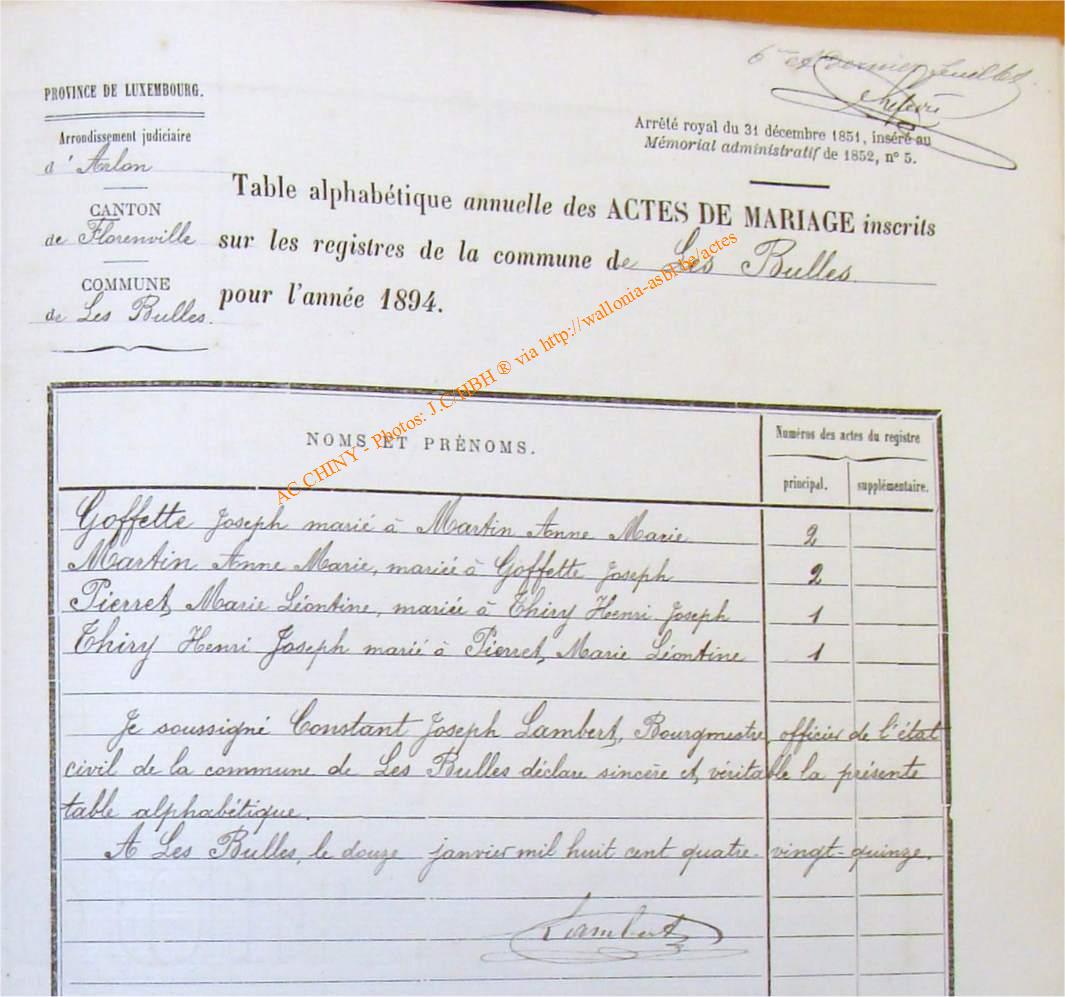 6me et dernier feuillet.
PROVINCE DE LUXEMBOURG.
Arrondissement judiciaire
d'Arlon
CANTON
de Florenville
COMMUNE
de Les Bulles.
Arrêté royal du 31 décembre 1851, inséré au
Mémorial administratif de 1852, n° 5.
Table alphabétique annuelle des ACTES DE MARIAGE inscrits
sur les registres de la commune de Les Bulles.
pour l'année 1894.
AC CHINY - Photos: J.C/HBH ® via http://wallonia-asbl.be/actes
NOMS ET PRÉNOMS.
Numéros des actes du registre
principal. supplémentaire.
Goffette Joseph marié à Martin Anne Marie 2
Martin Anne Marie, mariée à Goffette Joseph 2
Pierret, Marie Léontine, mariée à Thiry Henri Joseph 1
Thiry Henri Joseph marié à Pierret, Marie Léontine 1
Je soussigné Constant Joseph Lambert, Bourgmestre, officier de l'état
civil de la commune de Les Bulles déclare sincère et, véritable la présente
table alphabétique.
A Les Bulles, le douze janvier mil huit cent quatre-vingt-quinze.
Lambert